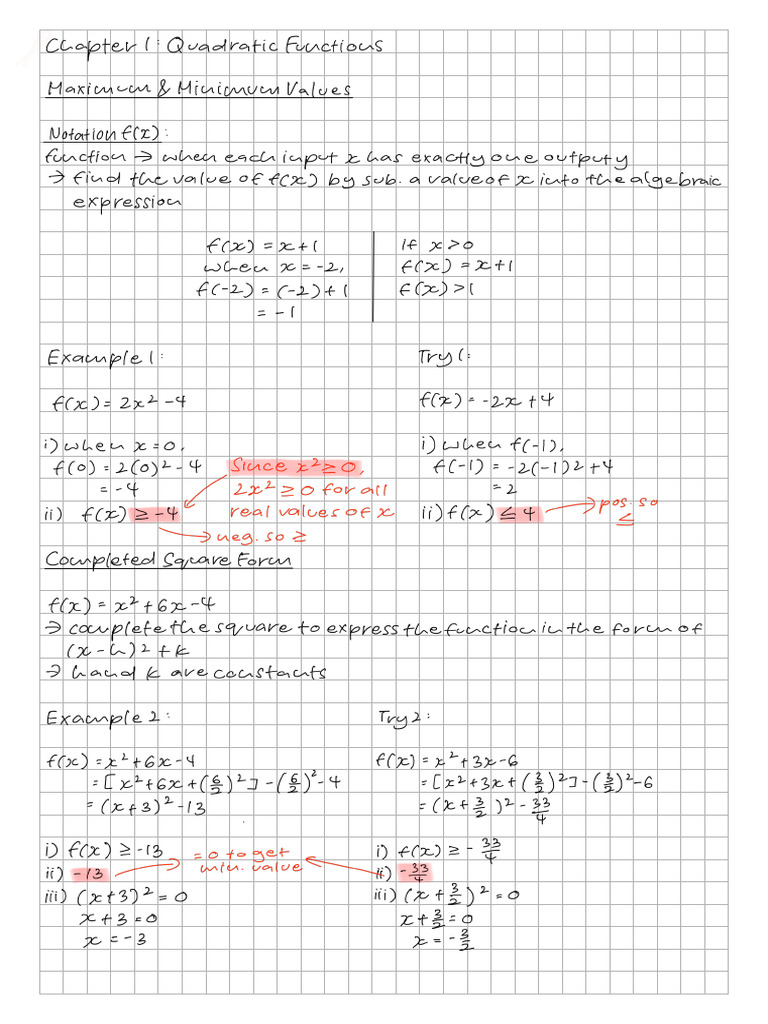 Chapter 1: Quadratic Functions
Maximum & Minimum Values
Notation f(x):
function → when each input x has exactly one output y
→ find the value of f(x) by sub. a value of x into the algebraic
expression
f(x) = x+1
when x = -2,
f(-2) = (-2)+1
= -1
If x>0
f(x) = x+1
f(x)>1
Example 1:
f(x) = 2x² -4
i) when x=0,
f(0) = 2(0)² -4
= -4
ii) f(x) ≥ -4
Since x² ≥ 0,
2x² ≥ 0 for all
real values of x
→ neg. so ≥
Try 1:
f(x) = -2x +4
i) when f(-1),
f(-1) = -2(-1)²+4
= 2
ii) f(x) ≤ 4
→ pos. so
≤
Completed Square Form
f(x) = x²+6x-4
→ complete the square to express the function in the form of
(x-h)²+k
→ h and k are constants
Example 2:
f(x) = x²+6x-4
= [x²+6x+(6/2)²] -(6/2)²-4
= (x+3)²-13
i) f(x) ≥ -13
ii) -13
iii) (x+3)² = 0
x+3=0
x = -3
= 0 to get
min. value
Try 2:
f(x) = x²+3x-6
= [x²+3x+(3/2)²] -(3/2)²-6
= (x+3/2)²- 33/4
i) f(x) ≥ - 33/4
ii) - 33/4
iii) (x+3/2)² = 0
x+3/2=0
x = -3/2